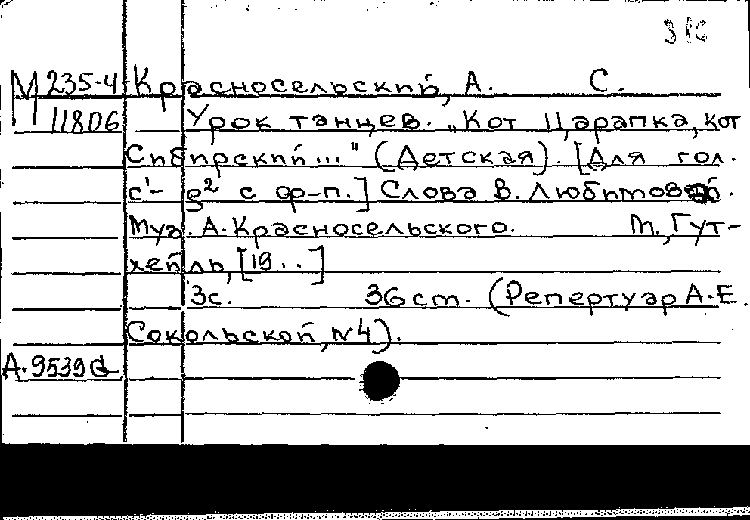 М 235-4 Красносельский, А. С.
11806 Урок танцев. „Кот Царапка, кот
Сибирский..." (Детская). [Для гол.
c¹- g² с ф-п.] Слова В. Любимовой.
Муз. А. Красносельского. М., Гут-
хейль, [19..]
3с. 36 ст. (Репертуар А.Е.
Сокольской, №4).